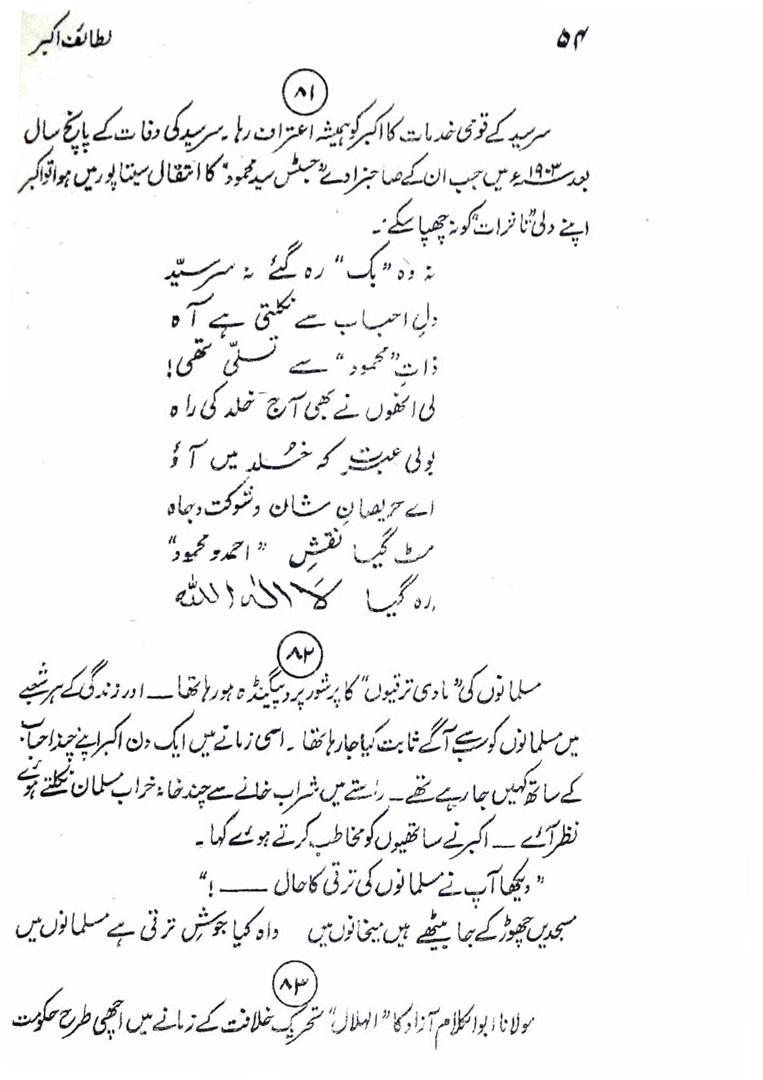 ۵۴ لطائف اکبر
۸۱
سرسید کے قومی خدمات کا اکبر کو ہمیشہ اعتراف رہا۔ سرسید کی وفات کے پانچ سال
بعد ۱۹۰۳ء میں جب ان کے صاحبزادے "جسٹس سید محمود" کا انتقال سیتاپور میں ہوا تو اکبر
اپنے دلی "تاثرات" کو نہ چھپا سکے:۔
نہ وہ "بک" رہ گئے نہ سرسیّد
دلِ احباب سے نکلتی ہے آہ
ذاتِ "محمود" سے تسلّی تھی!
لی انھوں نے بھی آج خلد کی راہ
بولی عبرت کہ خُلد میں آؤ
اے حریصانِ شان و شوکت و جاہ
مٹ گیا نقشِ "احمد و محمود"
رہ گیا لَا الٰہ الا اللّٰہ
۸۲
مسلمانوں کی "مادی ترقیوں" کا پرشور پروپیگنڈہ ہو رہا تھا — اور زندگی کے ہر شعبے
میں مسلمانوں کو سب سے آگے ثابت کیا جا رہا تھا۔ اسی زمانے میں ایک دن اکبر اپنے چند احباب
کے ساتھ کہیں جا رہے تھے۔ راستے میں شراب خانے سے چند خانہ خراب مسلمان نکلتے ہوئے
نظر آئے — اکبر نے ساتھیوں کو مخاطب کرتے ہوئے کہا۔
"دیکھا آپ نے مسلمانوں کی ترقی کا حال —— !"
مسجدیں چھوڑ کے جا بیٹھے ہیں میخانوں میں واہ کیا جوشِ ترقی ہے مسلمانوں میں
۸۳
مولانا ابوالکلام آزاد کا "الہلال" تحریک خلافت کے زمانے میں اچھی طرح حکومت